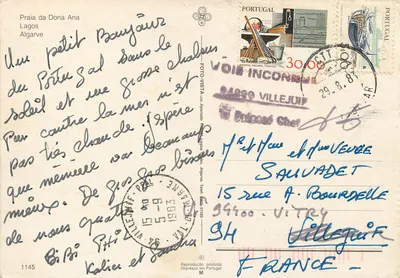 Praia da Dona Ana
Lagos
Algarve
Un petit Bonjour
du Portugal sous le
soleil et une grosse chaleur
Par contre la mer n'est
pas très chaude. J'espère
que mémère va beaucoup
mieux. De gros gros bisous
de nous quatre
Bibi Titi
Kalice et Sandra
1145
FOTO-VISTA
Reprodução proibida
Impresso em Portugal
M
PORTUGAL
30.00
PORTUGAL
29.8.83
VOIE INCONNUE
94800 VILLEJUIF
Le Préposé Chef
15-9
1983
Mr et Mme et Mme VEUVE
SAUVADET
15 RUE A. BOURDELLE
94400 - VITRY
94 Villejuif
FRANCE